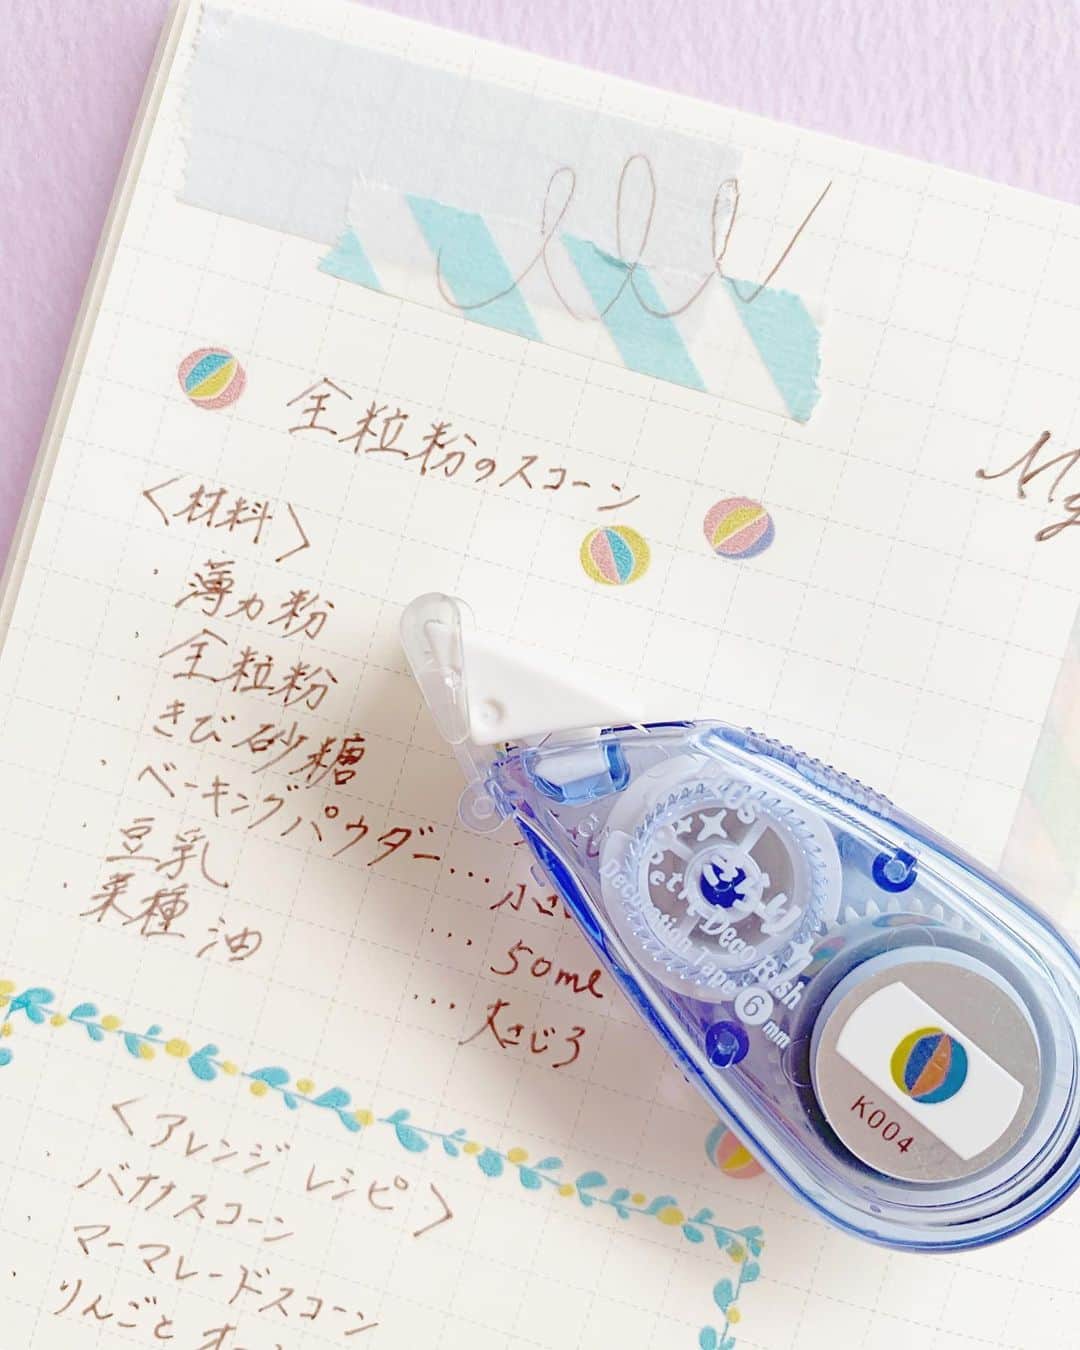 全粒粉のスコーン
My
〈材料〉
・薄力粉
・全粒粉
・きび砂糖
・ベーキングパウダー… 小さ
・豆乳 … 50ml
・菜種油 … 大さじ3
〈アレンジレシピ〉
・バナナスコーン
・マーマレードスコーン
・りんごと
PLUS
Petit Deco Rush
Decoration Tape 6mm
K004